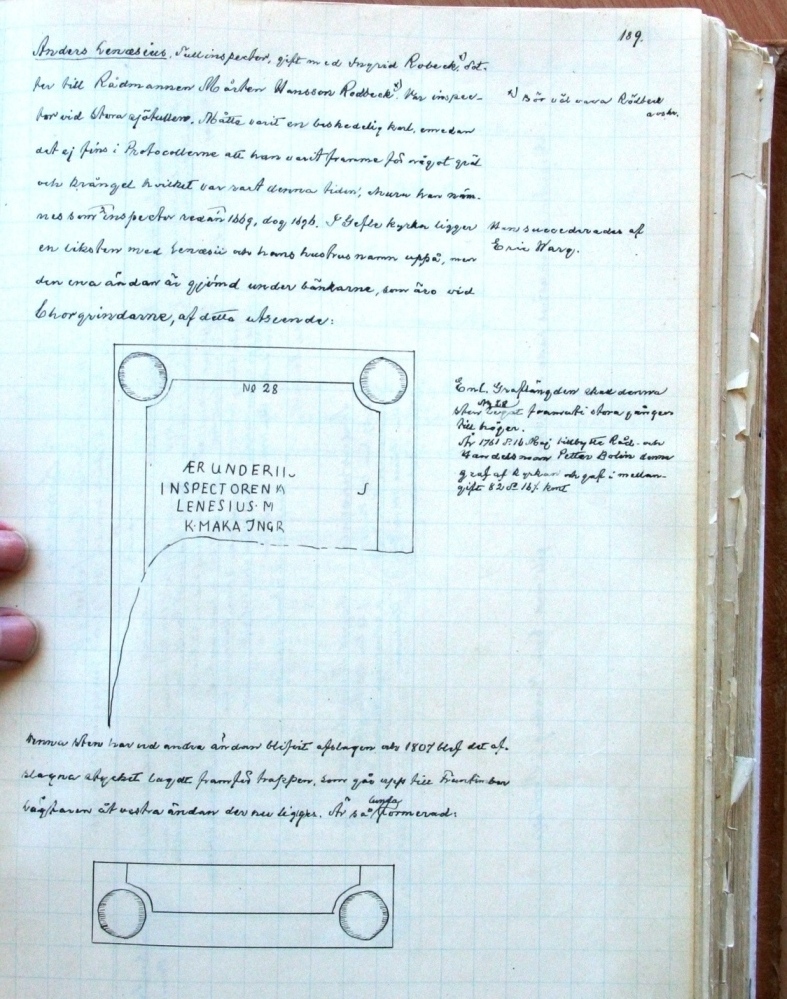 189.
Anders Lenæsius, Tullinspector, gift med Ingrid Robeck, x) Dot-
ter till Rådmannen Mårten Hansson Rodbeck x). Var inspec-
tor vid stora sjötullen. Måtte varit en beskedelig karl, emedan
det ej fins i Protocollerne att han varit framme för något gräl
och krångel hvilket var rart denna tiden, ehuru han näm-
nes som Inspector redan 1669, dog 1696. I Gefle kyrka ligger
en liksten med Lenæsii och hans hustrus namn uppå, men
den ena ändan är gjömd under bänkarne, som äro vid
Chorgrindarne, af detta utseende:
x) Bör väl vara Rödbeck
avskr.
Han succederades af
Eric Warg.
No 28
ÆR UNDER
INSPECTOREN
LENESIUS. M
K. MAKA INGR
S
Enl. Graflängden skal denna
sten No 28 framuti stora gången
till höger.
År 1761 d. 16 Maj tillbytte Råd- och
Handelsman Petter Bolin denna
graf af kyrkan och gaf i mellan-
gift 82 d. 16 kmt
Denna sten har vid andra ändan blifvit afslagen och 1807 blef det af-
slagna stycket lagdt framför trappan, som går upp till Fruntimber
läktaren åt vestra ändan der nu ligger. Är så lunda formerad: